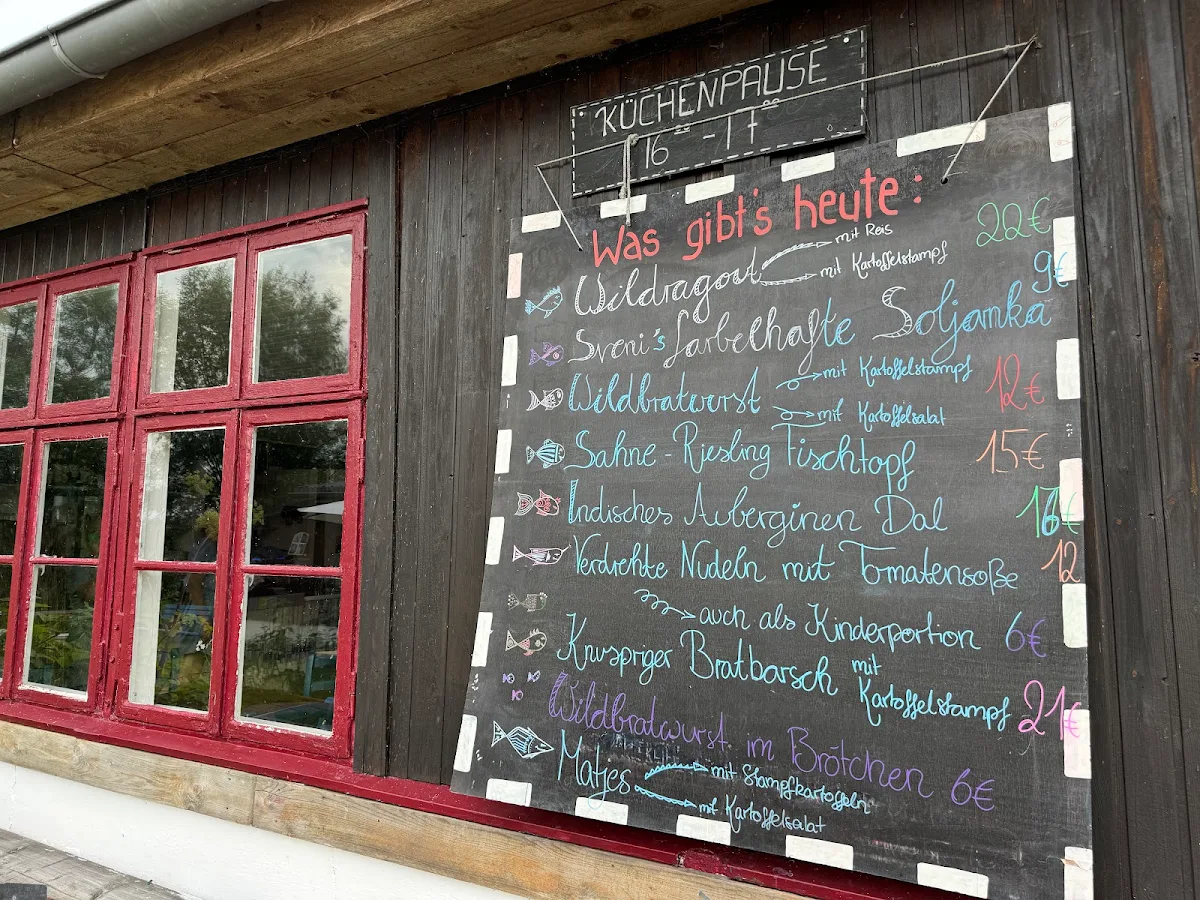 KÜCHENPAUSE
16⁰⁰ - 17⁰⁰
Was gibt's heute:
Wildragout mit Reis 22€
mit Kartoffelstampf
Sveni's fabelhafte Soljanka 9€
Wildbratwurst mit Kartoffelstampf 12€
mit Kartoffelsalat
Sahne-Riesling Fischtopf 15€
Indisches Auberginen Dal 16€
Verdrehte Nudeln mit Tomatensoße 12
auch als Kinderportion 6€
Knuspriger Bratbarsch mit
Kartoffelstampf 21€
Wildbratwurst im Brötchen 6€
Matjes mit Stampfkartoffeln
mit Kartoffelsalat